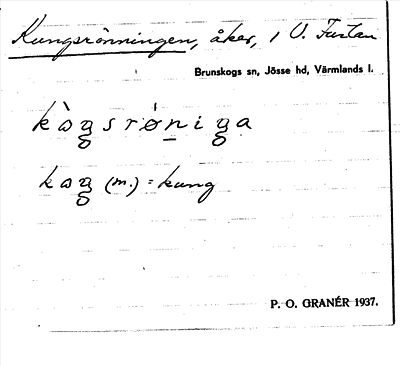 Kungsrönningen, åker, i V. Furtan
Brunskogs sn, Jösse hd, Värmlands l.
kùŋsrø̀niŋa
kuŋ (m.) = kung
P. O. GRANÉR 1937.